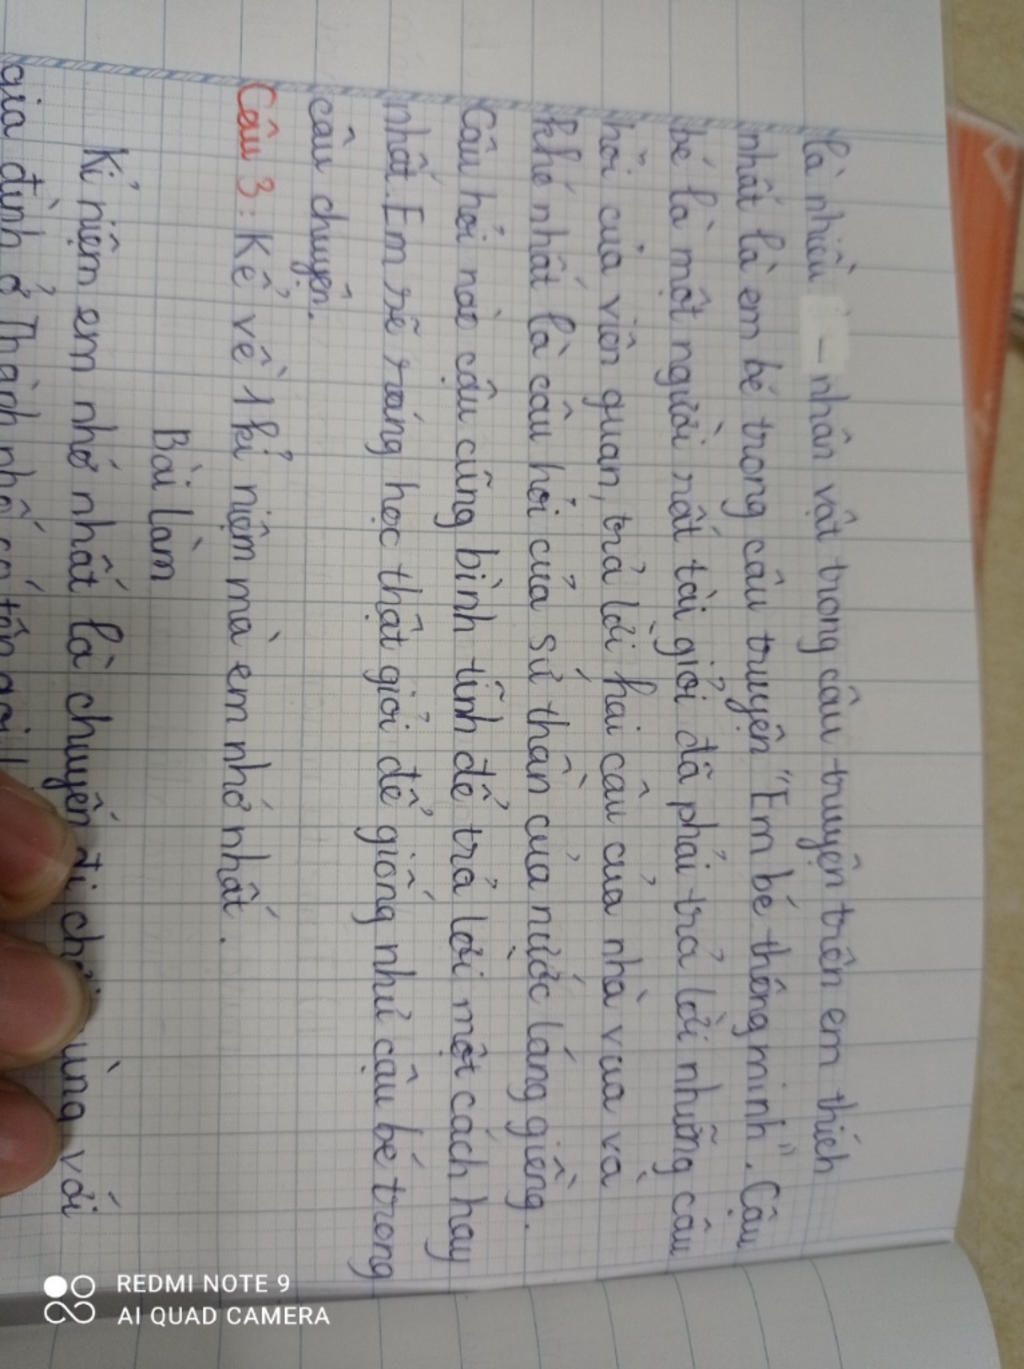 là nhiều - nhân vật trong câu truyện trên em thích
nhất là em bé trong câu truyện "Em bé thông minh". Cậu
bé là một người rất tài giỏi đã phải trả lời những câu
hỏi của viên quan, trả lời hai câu của nhà vua và
khó nhất là câu hỏi của sứ thần của nước láng giềng.
Câu hỏi nào cậu cũng bình tĩnh để trả lời một cách hay
nhất. Em sẽ ráng học thật giỏi để giống như cậu bé trong
câu chuyện.
Câu 3: Kể về 1 kỉ niệm mà em nhớ nhất.
Bài làm
Kỉ niệm em nhớ nhất là chuyến đi với
gia đình ở Thành phố có tên gọi
REDMI NOTE 9
AI QUAD CAMERA